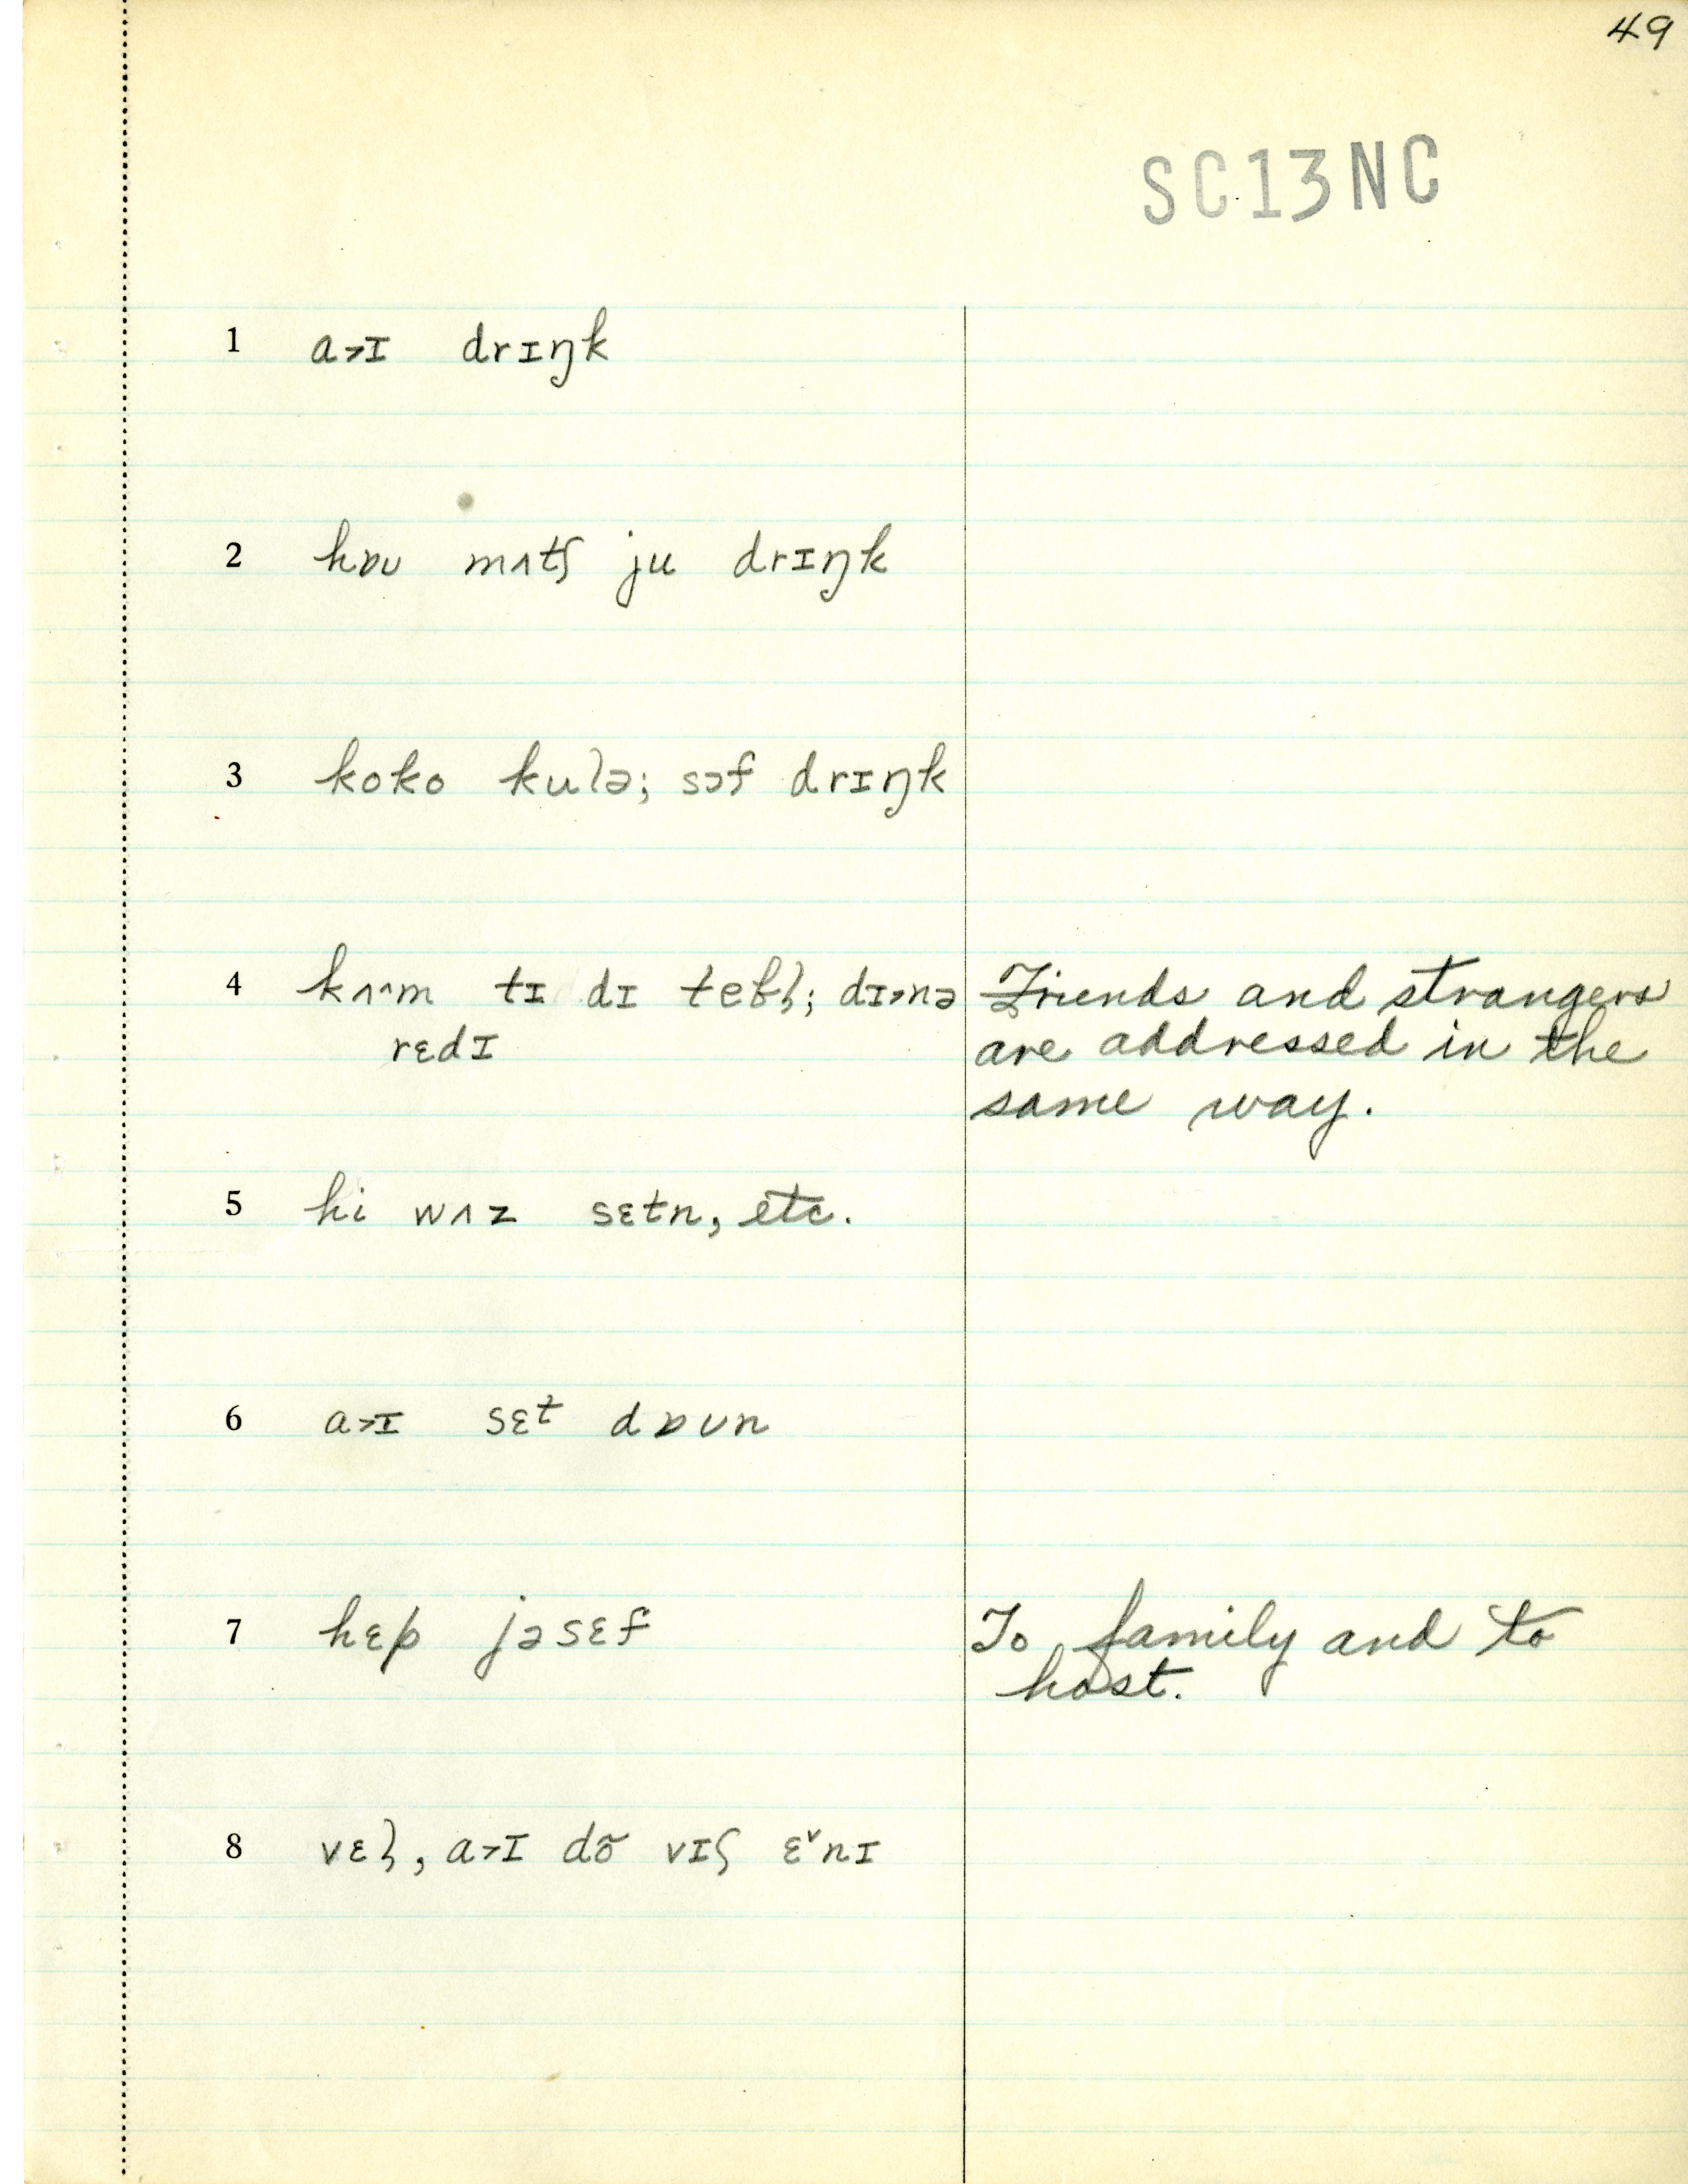 49
SC13NC
1 a>ɪ drɪŋk
2 hɒʊ mʌtʃ ju drɪŋk
3 koko kulə; sɔf drɪŋk
4 kʌ^m tɪ dɪ tebl̩; dɪ>nə Friends and strangers
rɛdɪ are addressed in the
same way.
5 hi wʌz sɛtn, etc.
6 a>ɪ sɛt dɒʊn
7 hɛp jəsɛf To family and to
host.
8 vɛl, a>ɪ dõ vɪʃ ɛ˅nɪ